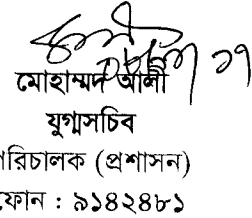 মোহাম্মদ আলী
যুগ্মসচিব
পরিচালক (প্রশাসন)
ফোন : ৯১৪২৪৮১